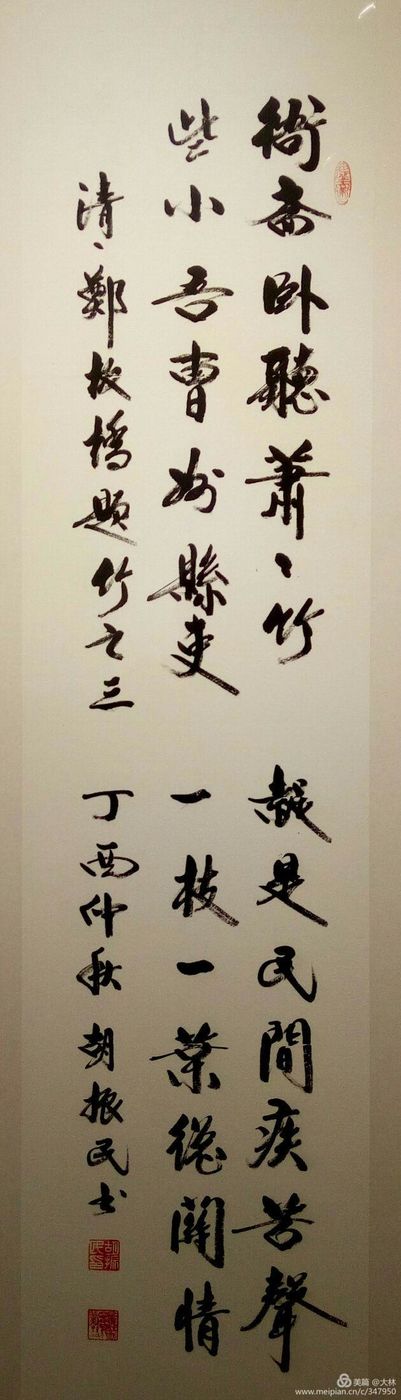 衙斋卧聽蕭〻竹 疑是民間疾苦聲
些小吾曹州縣吏 一枝一葉總關情
清、鄭板橋題竹之三 丁酉仲秋 胡振民书
美篇 @大林
www.meipian.cn/c/347950